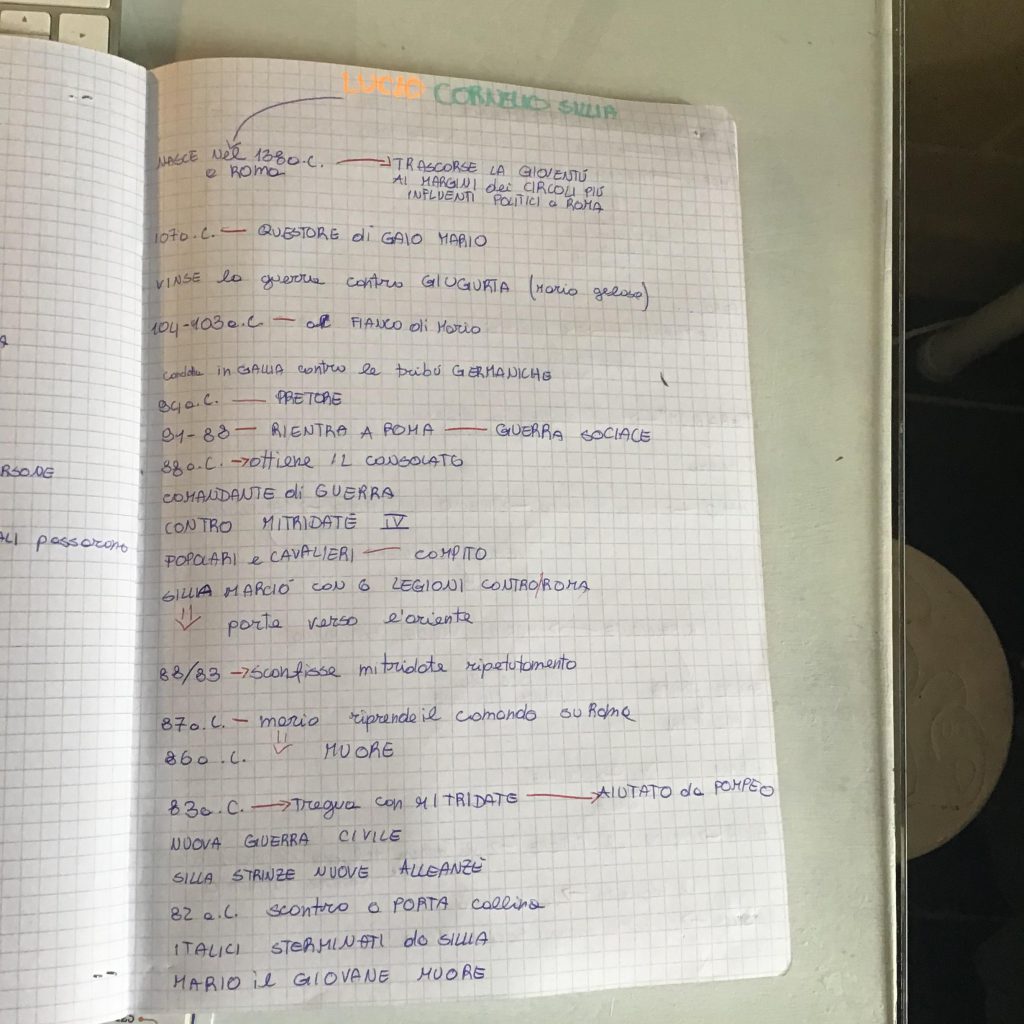 LUCIO CORNELIO SILLA
NASCE Nel 138 a.C. → TRASCORSE LA GIOVENTÙ
a ROMA
AI MARGINI dei CIRCOLI PIÙ
INFLUENTI POLITICI a ROMA
107 a.C. — QUESTORE di GAIO MARIO
VINSE la guerra contro GIUGURTA (Mario geloso)
104-103 a.C — al FIANCO di Mario
in GALLIA contro le tribù GERMANICHE
a.C. — PRETORE
91-88 — RIENTRA A ROMA — GUERRA SOCIALE
88 a.C. → ottiene IL CONSOLATO
COMANDANTE di GUERRA
CONTRO MITRIDATE IV
RSONE
POPOLARI e CAVALIERI — COMPITO
ALI passarono
SILLA MARCIÒ CON 6 LEGIONI CONTRO/ROMA
parte verso l'oriente
88/83 → sconfisse mitridate ripetutamento
87 a.C. — mario riprende il comando su Roma
86 a.C. MUORE
83 a.C. → Tregua con MITRIDATE → AIUTATO da POMPEO
NUOVA GUERRA CIVILE
SILLA STRINZE NUOVE ALLEANZE
82 a.C. scontro a PORTA Collina
ITALICI STERMINATI da SILLA
MARIO il GIOVANE MUORE